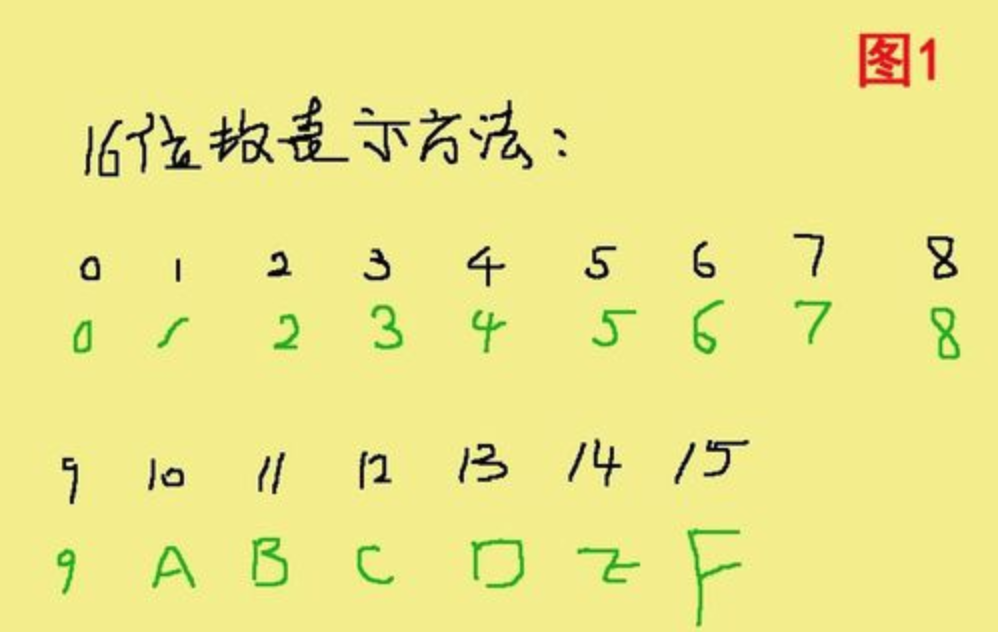 图1
16位数表示方法:
0 1 2 3 4 5 6 7 8
0 1 2 3 4 5 6 7 8
9 10 11 12 13 14 15
9 A B C D E F